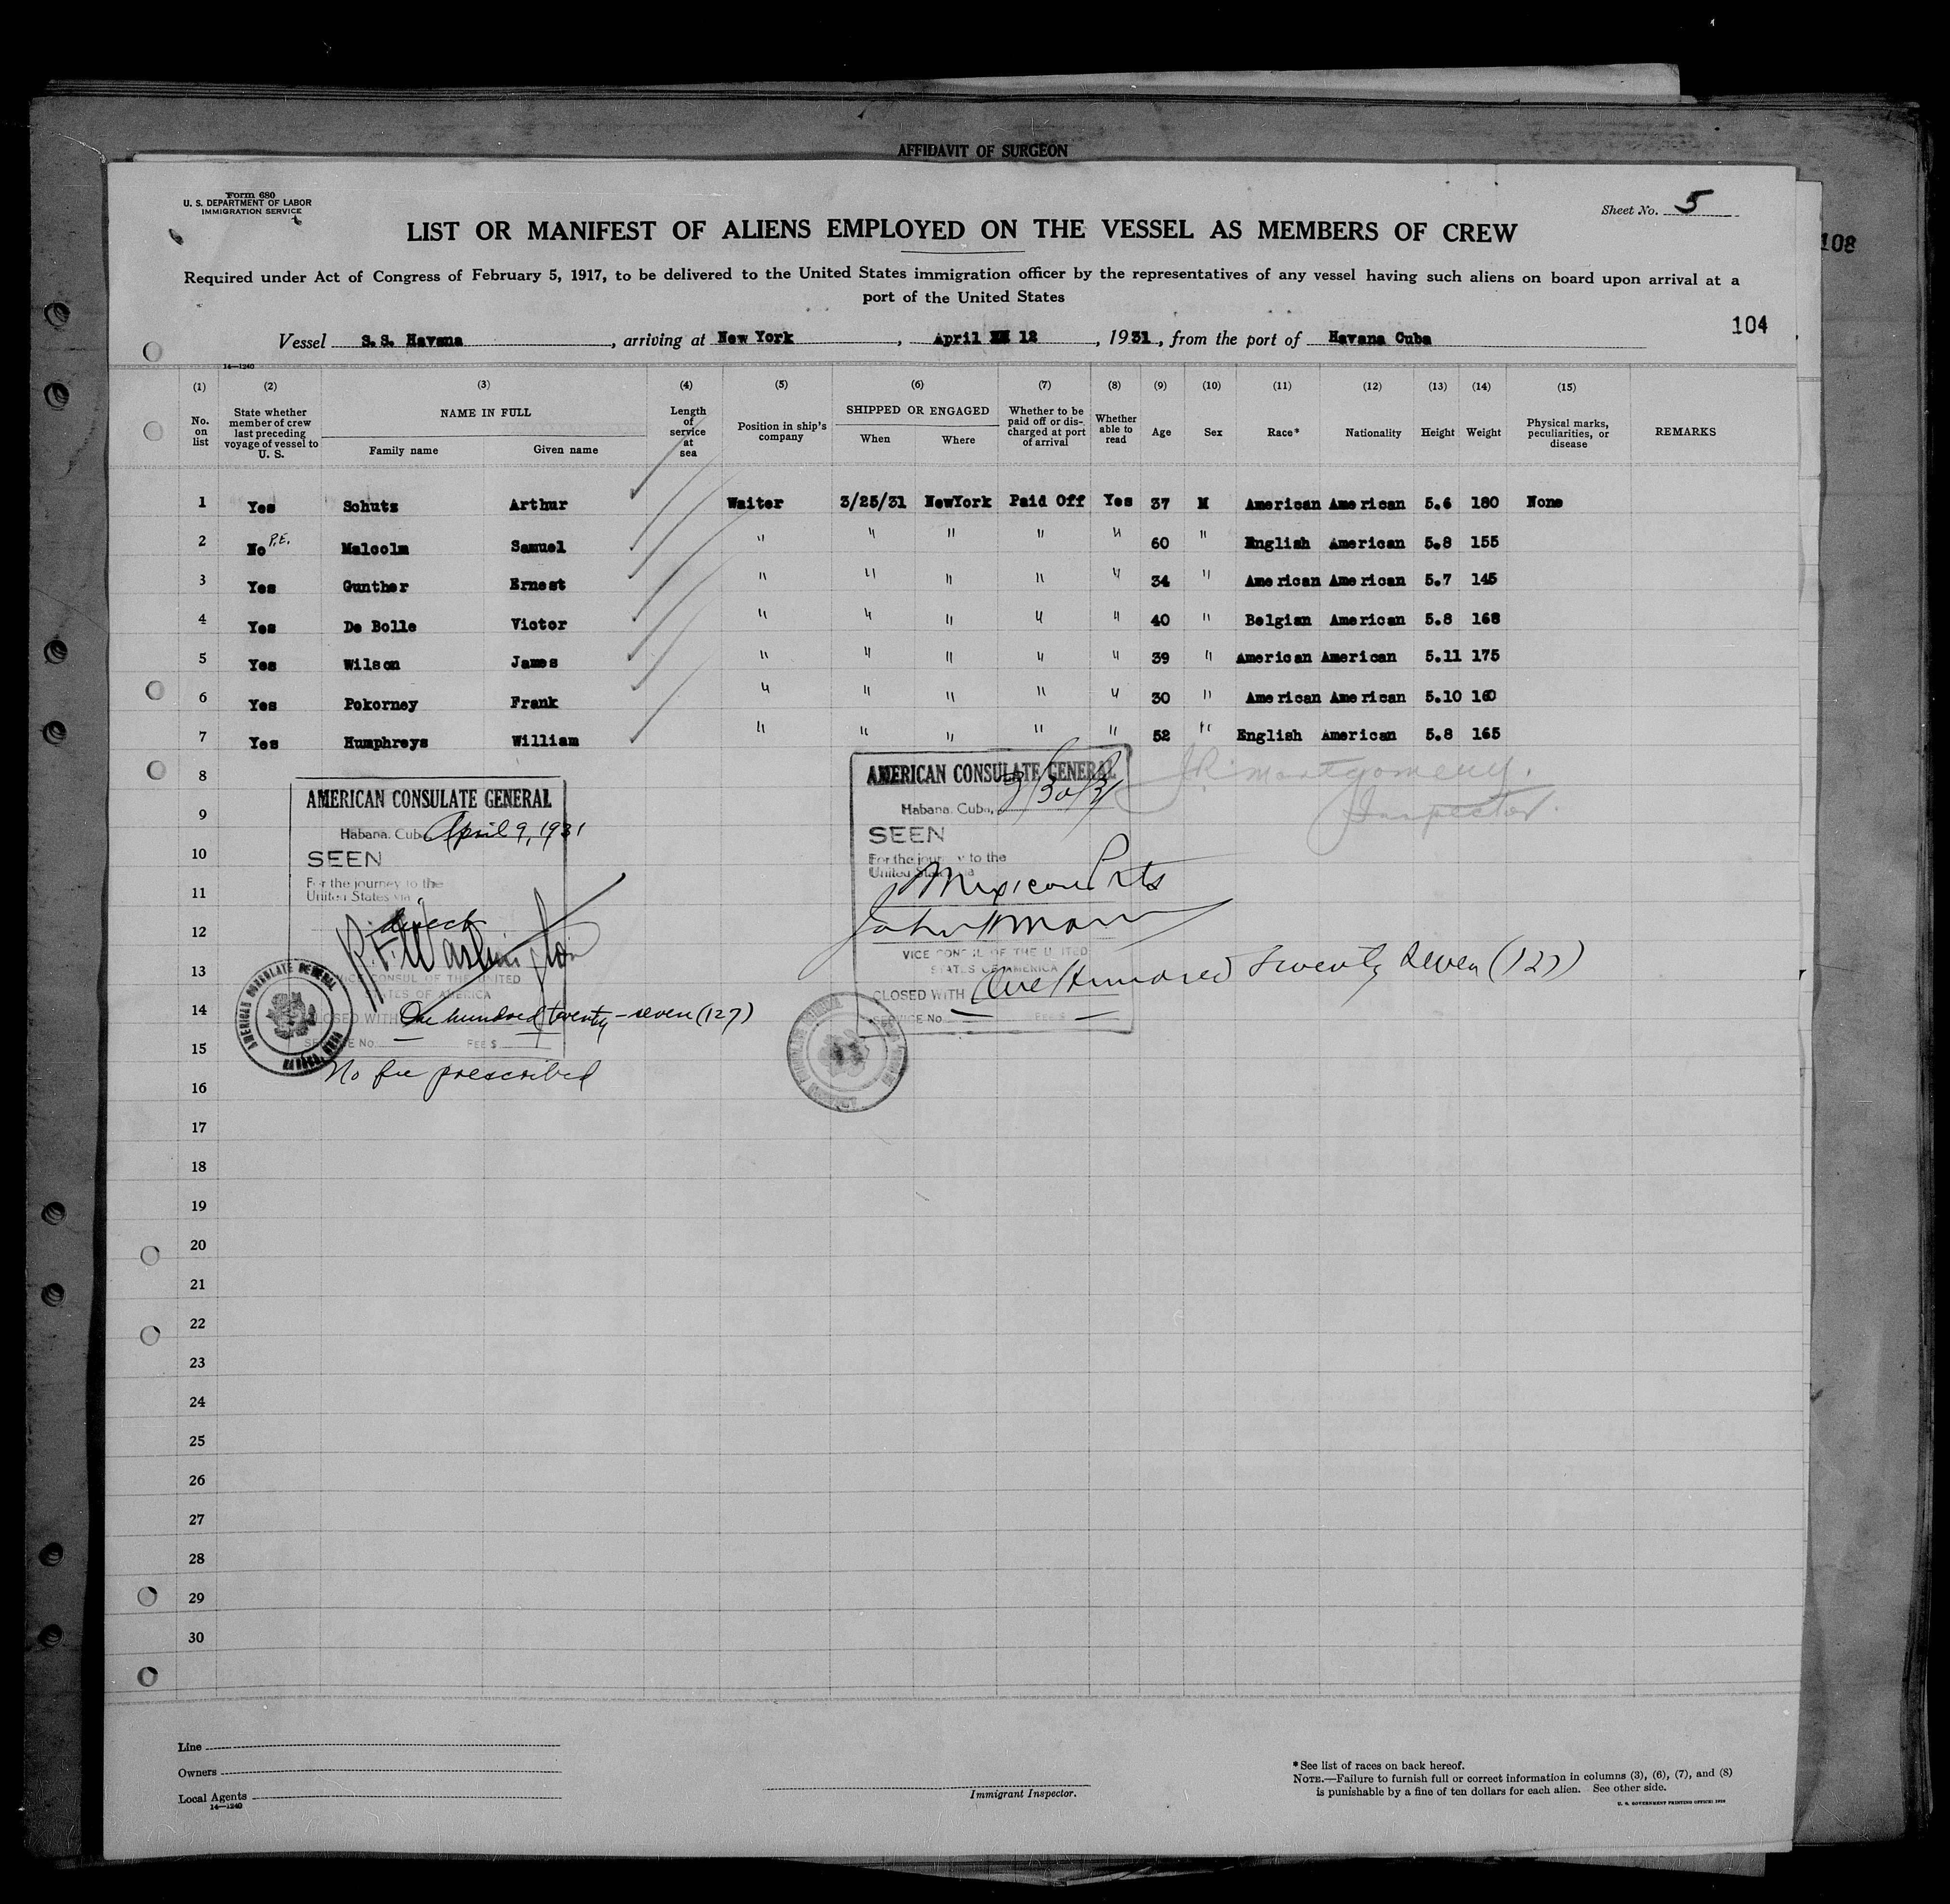 AFFIDAVIT OF SURGEON
Form 680
U. S. DEPARTMENT OF LABOR
IMMIGRATION SERVICE
Sheet No. 5
LIST OR MANIFEST OF ALIENS EMPLOYED ON THE VESSEL AS MEMBERS OF CREW
108
Required under Act of Congress of February 5, 1917, to be delivered to the United States immigration officer by the representatives of any vessel having such aliens on board upon arrival at a
port of the United States
104
Vessel S.S. Havana, arriving at New York, April 12, 1931, from the port of Havana Cuba
14—1240
(1) (2) (3) (4) (5) (6) (7) (8) (9) (10) (11) (12) (13) (14) (15)
No. on list State whether member of crew last preceding voyage of vessel to U. S. NAME IN FULL Family name Given name Length of service at sea Position in ship's company SHIPPED OR ENGAGED When Where Whether to be paid off or discharged at port of arrival Whether able to read Age Sex Race* Nationality Height Weight Physical marks, peculiarities, or disease REMARKS
1 Yes Schutz Arthur Waiter 3/25/31 NewYork Paid Off Yes 37 M American American 5.6 180 None
2 No P.E. Malcolm Samuel " " " " " 60 " English American 5.8 155
3 Yes Gunther Ernest " " " " " 34 " American American 5.7 145
4 Yes De Bolle Victor " " " " " 40 " Belgian American 5.8 168
5 Yes Wilson James " " " " " 39 " American American 5.11 175
6 Yes Pokorney Frank " " " " " 30 " American American 5.10 160
7 Yes Humphreys William " " " " " 52 " English American 5.8 165
8
9
10
11
12
13
14
15
16
17
18
19
20
21
22
23
24
25
26
27
28
29
30
AMERICAN CONSULATE GENERAL
Habana, Cuba, April 9, 1931
SEEN
For the journey to the
United States via
direct
R.F. Washington
VICE CONSUL OF THE UNITED
STATES OF AMERICA
CLOSED WITH One hundred twenty-seven (127)
SERVICE No. — FEE $
No fee prescribed
AMERICAN CONSULATE GENERAL
HABANA, CUBA
AMERICAN CONSULATE GENERAL
Habana, Cuba, 3/30/31
SEEN
For the journey to the
United States via
Mexican Ports
VICE CONSUL OF THE UNITED
STATES OF AMERICA
CLOSED WITH One Hundred Twenty Seven (127)
SERVICE No. — FEE $ —
J.R. Montgomery.
Inspector.
Line
Owners
Local Agents
14—1240
Immigrant Inspector.
*See list of races on back hereof.
NOTE.—Failure to furnish full or correct information in columns (3), (6), (7), and (8)
is punishable by a fine of ten dollars for each alien. See other side.